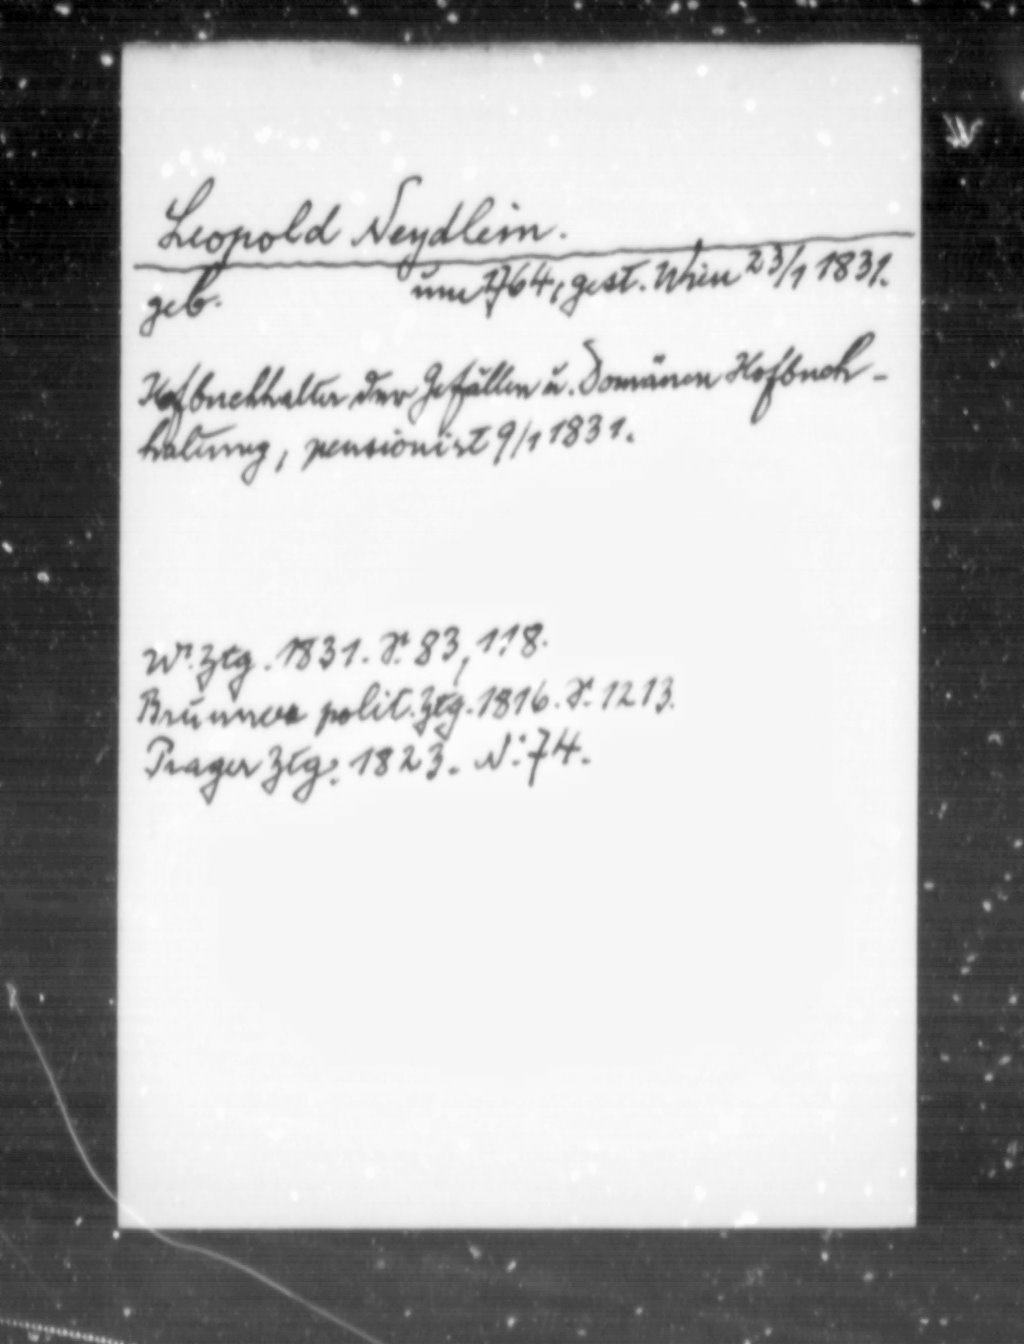 Leopold Neydlein.
geb. um 1764, gest. Wien 23/1 1831.
Hofbuchhalter der Gefällen u. Domänen Hofbuch-
haltung, pensionirt 9/1 1831.
Wr. Ztg. 1831. S. 83, 118.
Brünner polit. Ztg. 1816. S. 1213.
Prager Ztg. 1823. N: 74.